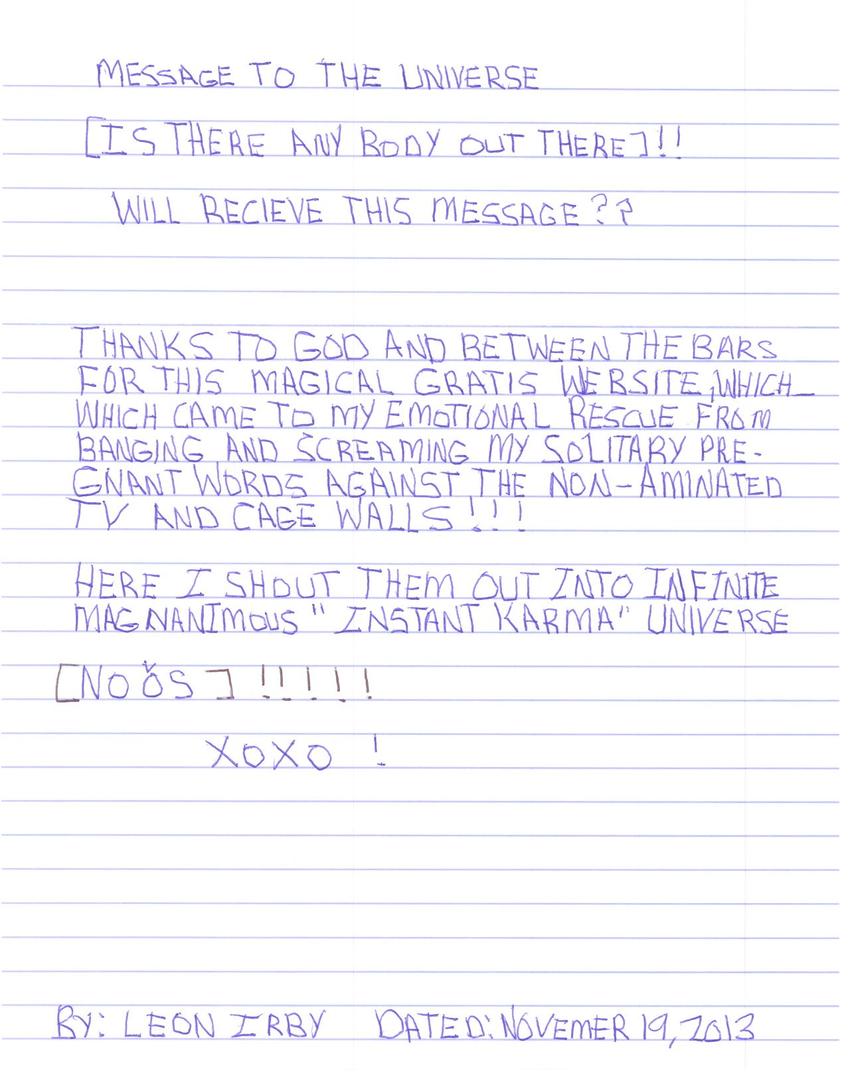 MESSAGE TO THE UNIVERSE
[IS THERE ANY BODY OUT THERE]!!
WILL RECIEVE THIS MESSAGE??
THANKS TO GOD AND BETWEEN THE BARS
FOR THIS MAGICAL GRATIS WEBSITE, WHICH
WHICH CAME TO MY EMOTIONAL RESCUE FROM
BANGING AND SCREAMING MY SOLITARY PRE-
GNANT WORDS AGAINST THE NON-AMINATED
TV AND CAGE WALLS!!!
HERE I SHOUT THEM OUT INTO INFINITE
MAGNANIMOUS "INSTANT KARMA" UNIVERSE
[NOǑS]!!!!!
XOXO !
BY: LEON IRBY DATED: NOVEMER 19, 2013